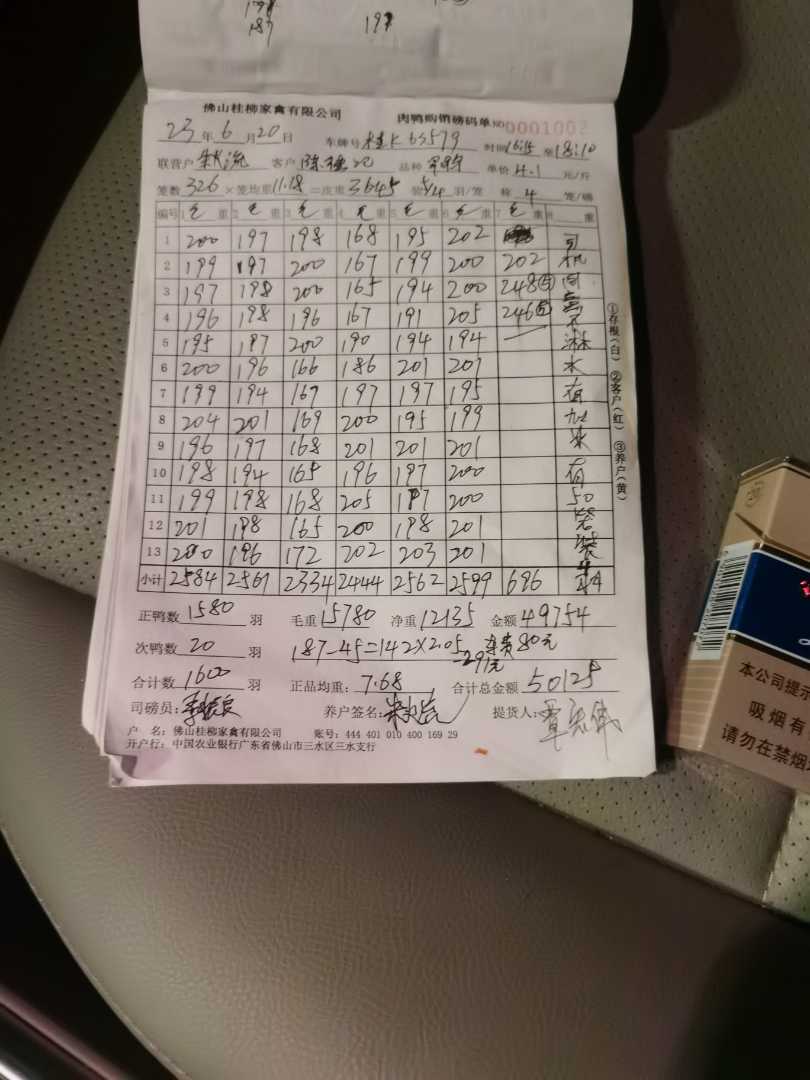 187 197
佛山桂柳家禽有限公司 肉鸭购销磅码单 NO 0001002
23年6月20日 车牌号 桂K63579 时间16:15至18:10
联营户 客户 品种 单价4.1元/斤
笼数326×笼均重11.18=皮重3645 装5/4羽/笼 称4笼/磅
编号 1毛重 2毛重 3毛重 4毛重 5毛重 6毛重 7毛重 8 重
1 200 197 198 168 195 202 司
2 199 197 200 167 199 200 202 机
3 197 198 200 165 194 200 248⑤ 同
4 196 198 196 167 191 205 246⑤
5 195 197 200 190 194 194 淋
6 200 196 166 186 201 201 水
7 199 194 167 197 197 195 有
8 204 201 169 200 195 199 加
9 196 197 168 201 201 201
10 198 194 165 196 197 200 有
11 199 198 168 205 197 200 50
12 201 198 165 200 198 201
13 200 196 172 202 203 201 装
小计 2584 2561 2334 2444 2562 2599 696
正鸭数1580羽 毛重15780 净重12135 金额49754
次鸭数20羽 187-45=142×2.05=291元 杂费80元
合计数1600羽 正品均重:7.68 合计总金额50125
司磅员: 养户签名: 提货人:
户 名:佛山桂柳家禽有限公司 账号:444 401 010 400 169 29
开户行:中国农业银行广东省佛山市三水区三水支行
①存根(白) ②客户(红) ③养户(黄)
本公司提示
吸烟有
请勿在禁烟